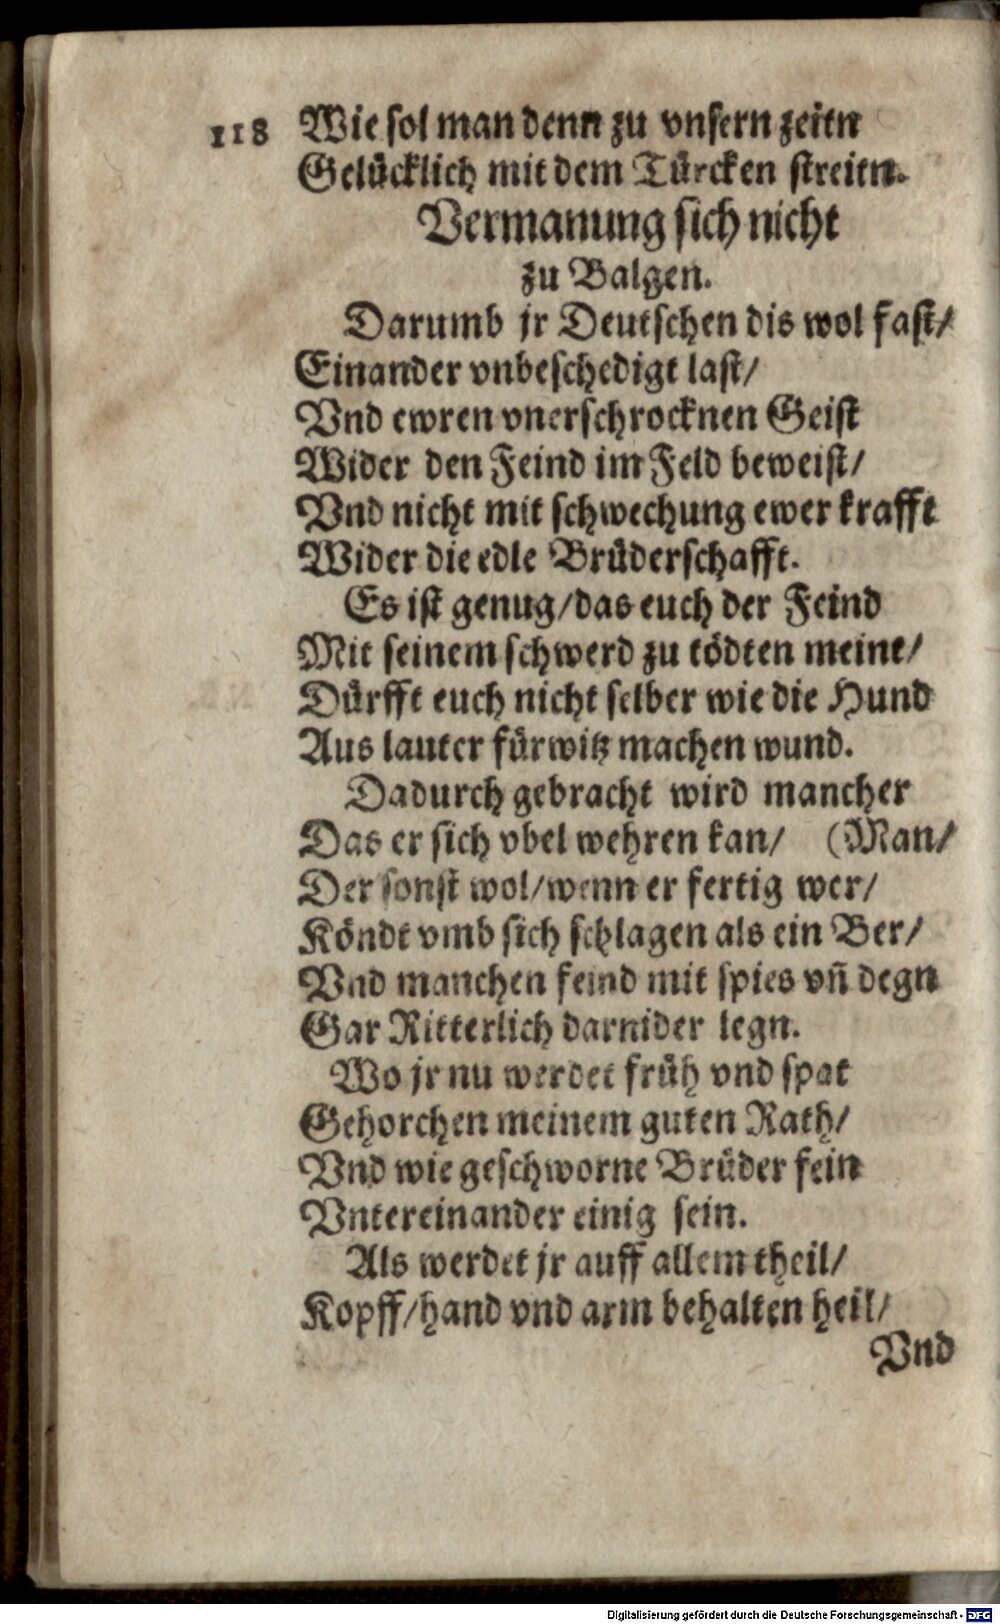 118 Wie sol man denn zu vnsern zeitn
Gelücklich mit dem Türcken streitn.
Vermanung sich nicht
zu Balgen.
Darumb jr Deutschen dis wol fast/
Einander vnbeschedigt last/
Vnd ewren vnerschrocknen Geist
Wider den Feind im Feld beweist/
Vnd nicht mit schwechung ewer krafft
Wider die edle Brüderschafft.
Es ist genug/das euch der Feind
Mit seinem schwerd zu tödten meint/
Dürfft euch nicht selber wie die Hund
Aus lauter fürwitz machen wund.
Dadurch gebracht wird mancher
Das er sich vbel wehren kan/ (Man/
Der sonst wol/wenn er fertig wer/
Köndt vmb sich schlagen als ein Ber/
Vnd manchen feind mit spies vn̄ degn
Gar Ritterlich darnider legn.
Wo jr nu werdet früh vnd spat
Gehorchen meinem guten Rath/
Vnd wie geschworne Brüder fein
Vntereinander einig sein.
Als werdet jr auff allem theil/
Kopff/hand vnd arm behalten heil/
Vnd
Digitalisierung gefördert durch die Deutsche Forschungsgemeinschaft - DFG